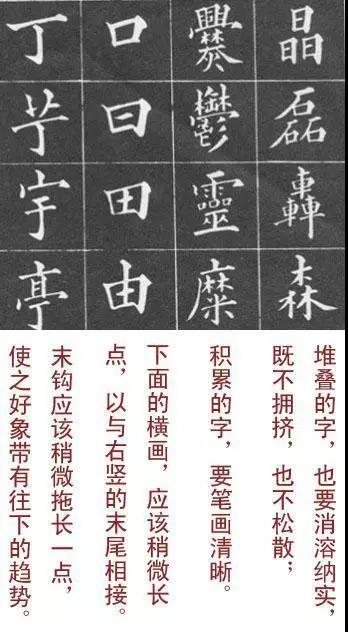 晶磊轟森
爨鬱靈糜
口曰田由
丁宇亭
堆叠的字，也要消溶纳实，
既不拥挤，也不松散；
积累的字，要笔画清晰。
下面的横画，应该稍微长
点，以与右竖的末尾相接。
末钩应该稍微拖长一点，
使之好象带有往下的趋势。